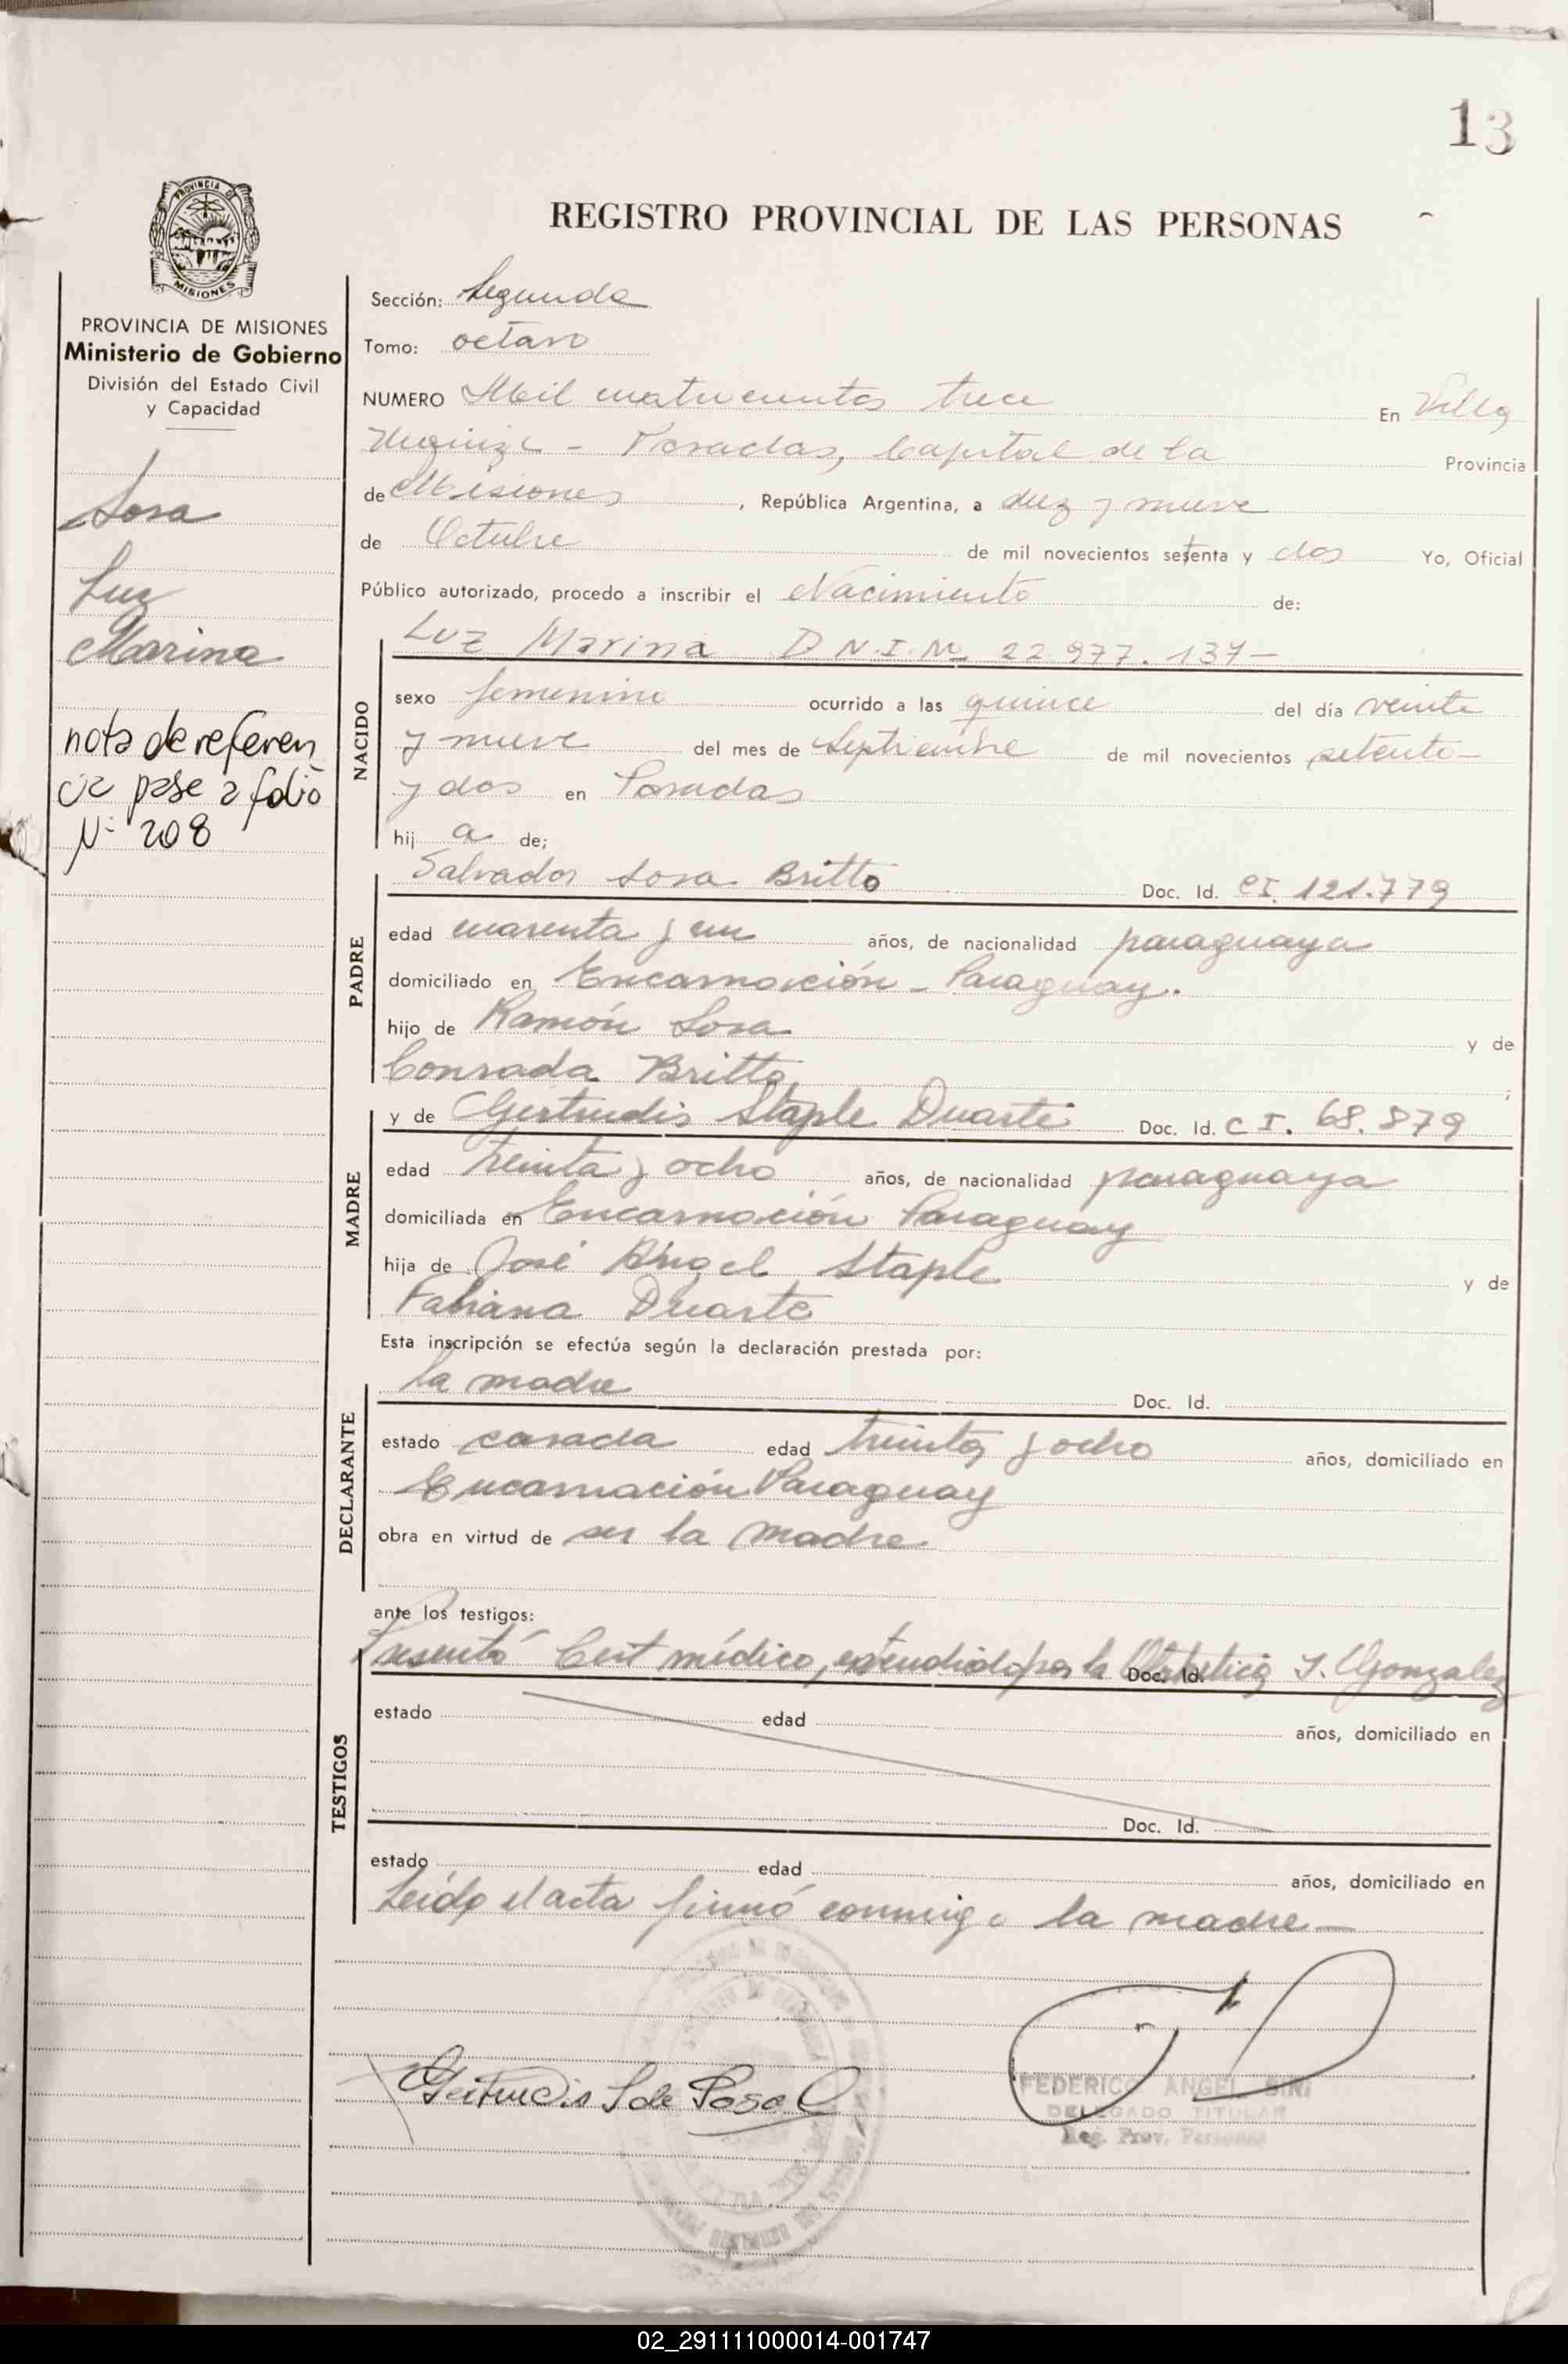 13
PROVINCIA DE
MISIONES
REGISTRO PROVINCIAL DE LAS PERSONAS
PROVINCIA DE MISIONES
Ministerio de Gobierno
División del Estado Civil
y Capacidad
Sosa
Luz
Marina
nota de referen
cia pase a folio
Nº 208
Sección: Segunda
Tomo: octavo
NUMERO Mil cuatrocientos trece En Villa
Urquiza - Posadas, Capital de la Provincia
de Misiones, República Argentina, a diez y nueve
de Octubre de mil novecientos setenta y dos Yo, Oficial
Público autorizado, procedo a inscribir el Nacimiento de:
NACIDO
Luz Marina D.N.I. Nº 22.977.137-
sexo femenino ocurrido a las quince del día veinte
y nueve del mes de Septiembre de mil novecientos setenta-
y dos en Posadas
hij a de;
PADRE
Salvador Sosa Britto Doc. Id. CI. 121.779
edad cuarenta y un años, de nacionalidad paraguaya
domiciliado en Encarnación - Paraguay.
hijo de Ramón Sosa y de
Conrada Britto ;
MADRE
y de Gertrudis Staple Duarte Doc. Id. C I. 68.879
edad treinta y ocho años, de nacionalidad paraguaya
domiciliada en Encarnación Paraguay
hija de José Angel Staple y de
Fabiana Duarte
Esta inscripción se efectúa según la declaración prestada por:
DECLARANTE
la madre Doc. Id.
estado casada edad treinta y ocho años, domiciliado en
Encarnación Paraguay
obra en virtud de ser la madre
ante los testigos:
TESTIGOS
Presentó Cert médico, extendido por la Obstetica Doc. Id. Y. Gonzalez
estado edad años, domiciliado en
Doc. Id.
estado edad años, domiciliado en
Leída el acta firmó conmigo la madre.—
Gertrudis S de Sosa
FEDERICO ANGEL SIRI
DELEGADO TITULAR
Reg. Prov. Personas
02_291111000014-001747